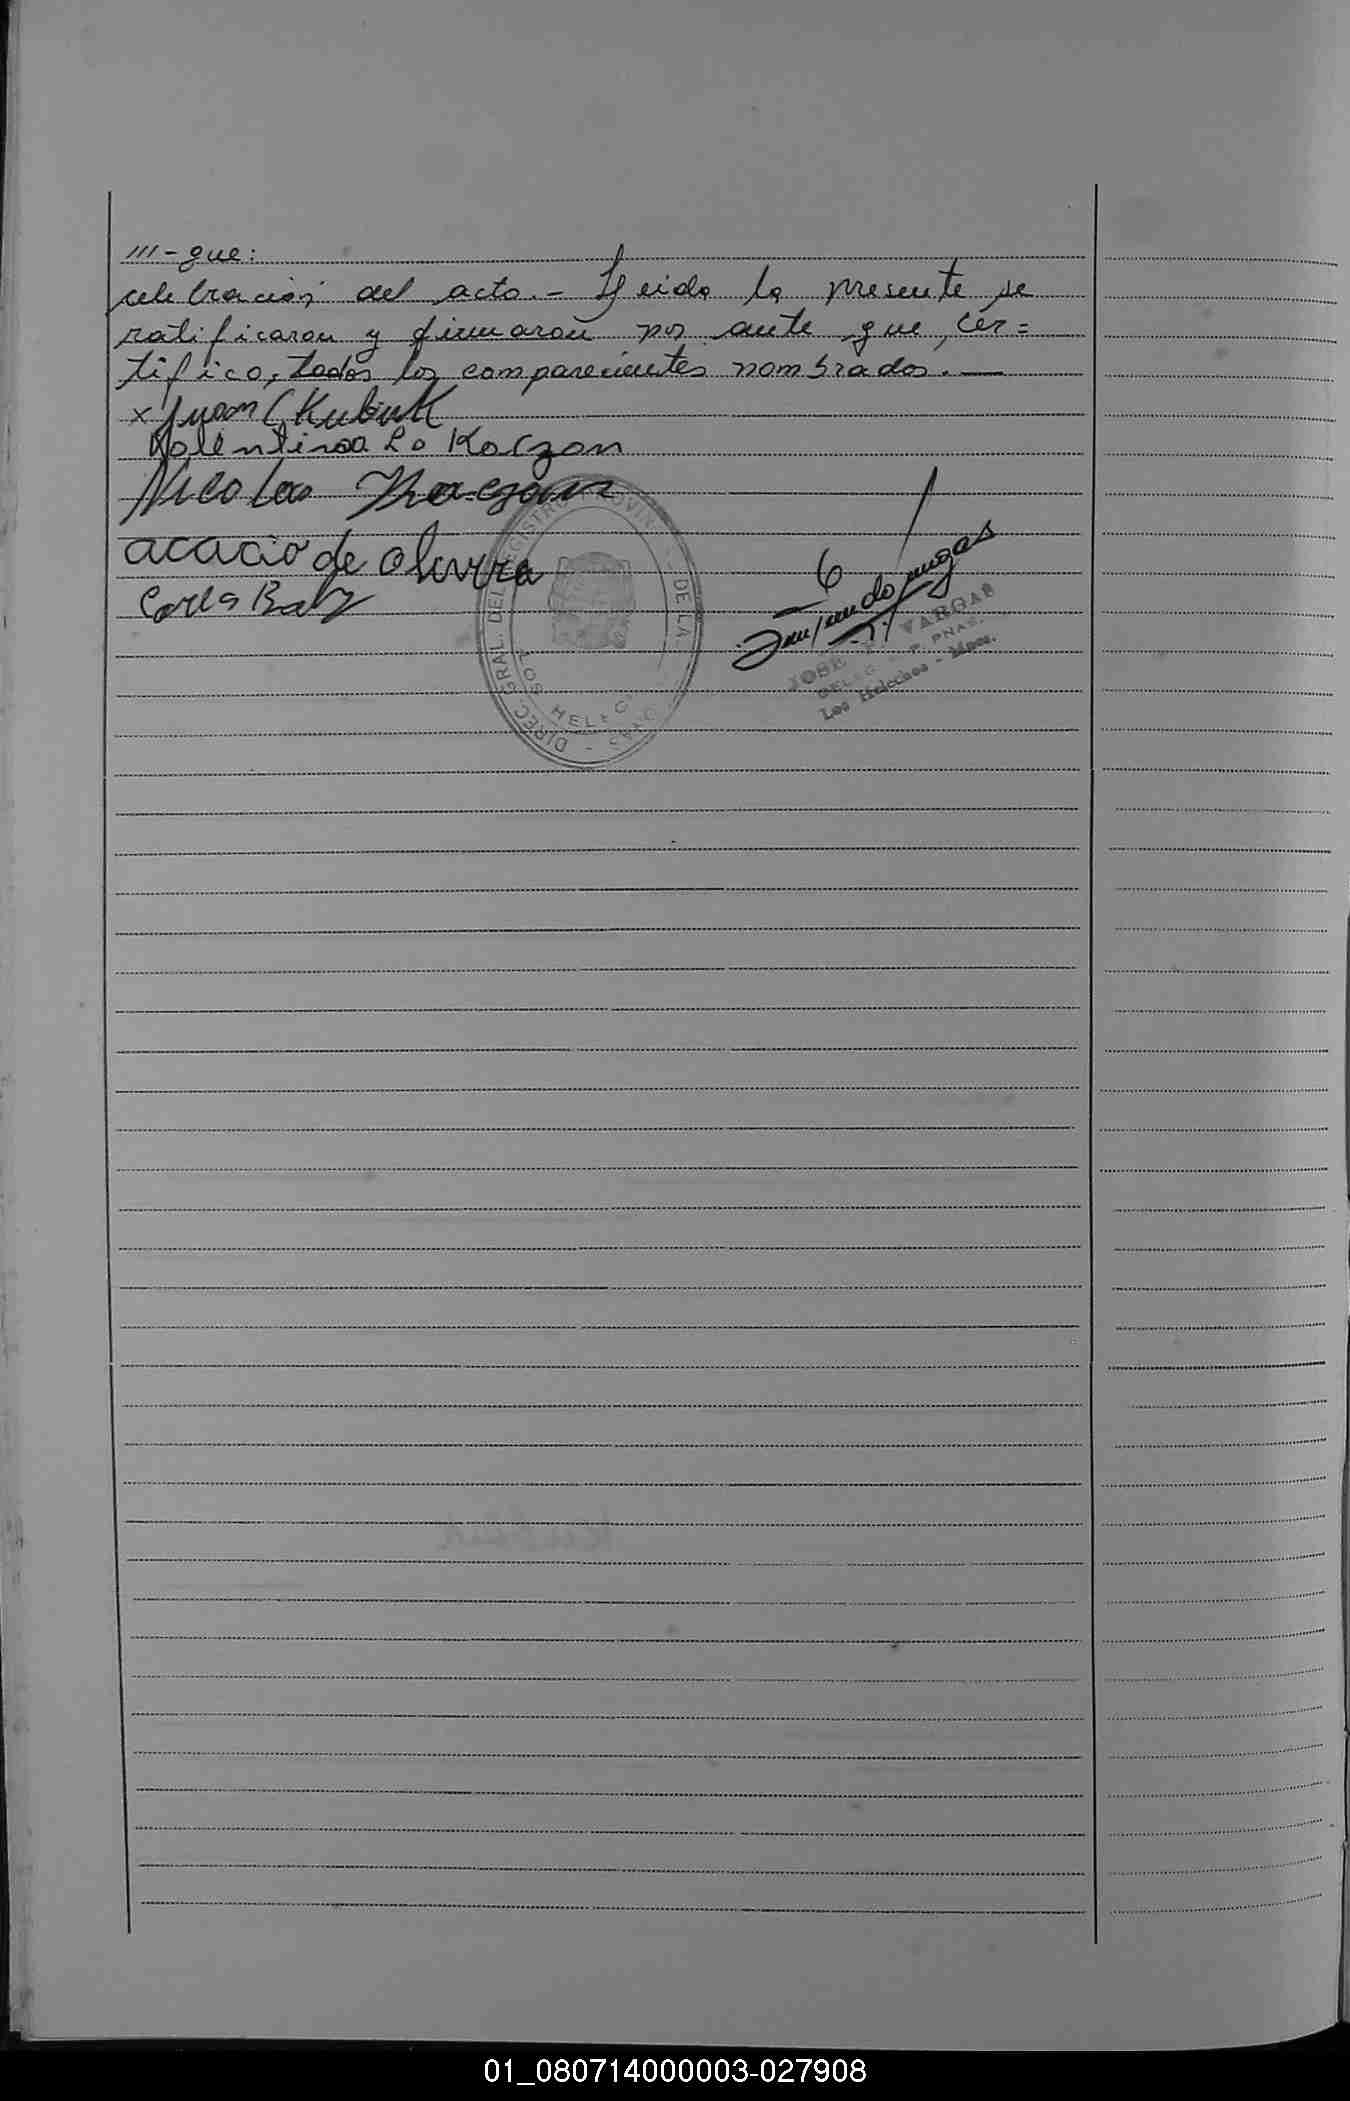 ///-que:
celebración del acto.- Leida la presente se
ratificaron y firmaron por ante que, cer=
tifico, todos los comparecientes nombrados.—
x Juan C Kubiuk
Valentina L. Korzan
Nicolas
acacio de olivera
Carlos
DIREC. GRAL. DEL REGISTRO PROVIN. DE LAS
LOS HELECHOS
JOSE VARGAS
DELEG. R. P. PNAS.
Los Helechos - Mnes.
01_080714000003-027908